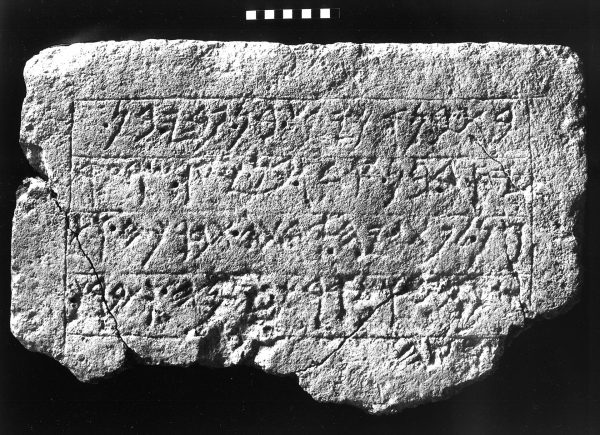 𐤁𐤕.𐤁𐤍.𐤀𐤊𐤉𐤔.𐤁𐤍.𐤐𐤃𐤉.𐤁𐤍.
𐤉𐤎𐤃.𐤁𐤍.𐤀𐤃𐤀.𐤁𐤍.𐤉𐤏𐤓.𐤔𐤓𐤏𐤒
𐤓𐤍.𐤋𐤐𐤕𐤂𐤉𐤄.𐤀𐤃𐤕𐤄.𐤕𐤁𐤓𐤊𐤄.𐤅𐤕𐤔
𐤌𐤓𐤄.𐤅𐤕𐤀𐤓𐤊.𐤉𐤌𐤄.𐤅𐤕𐤁𐤓𐤊.
𐤀𐤓𐤑𐤄